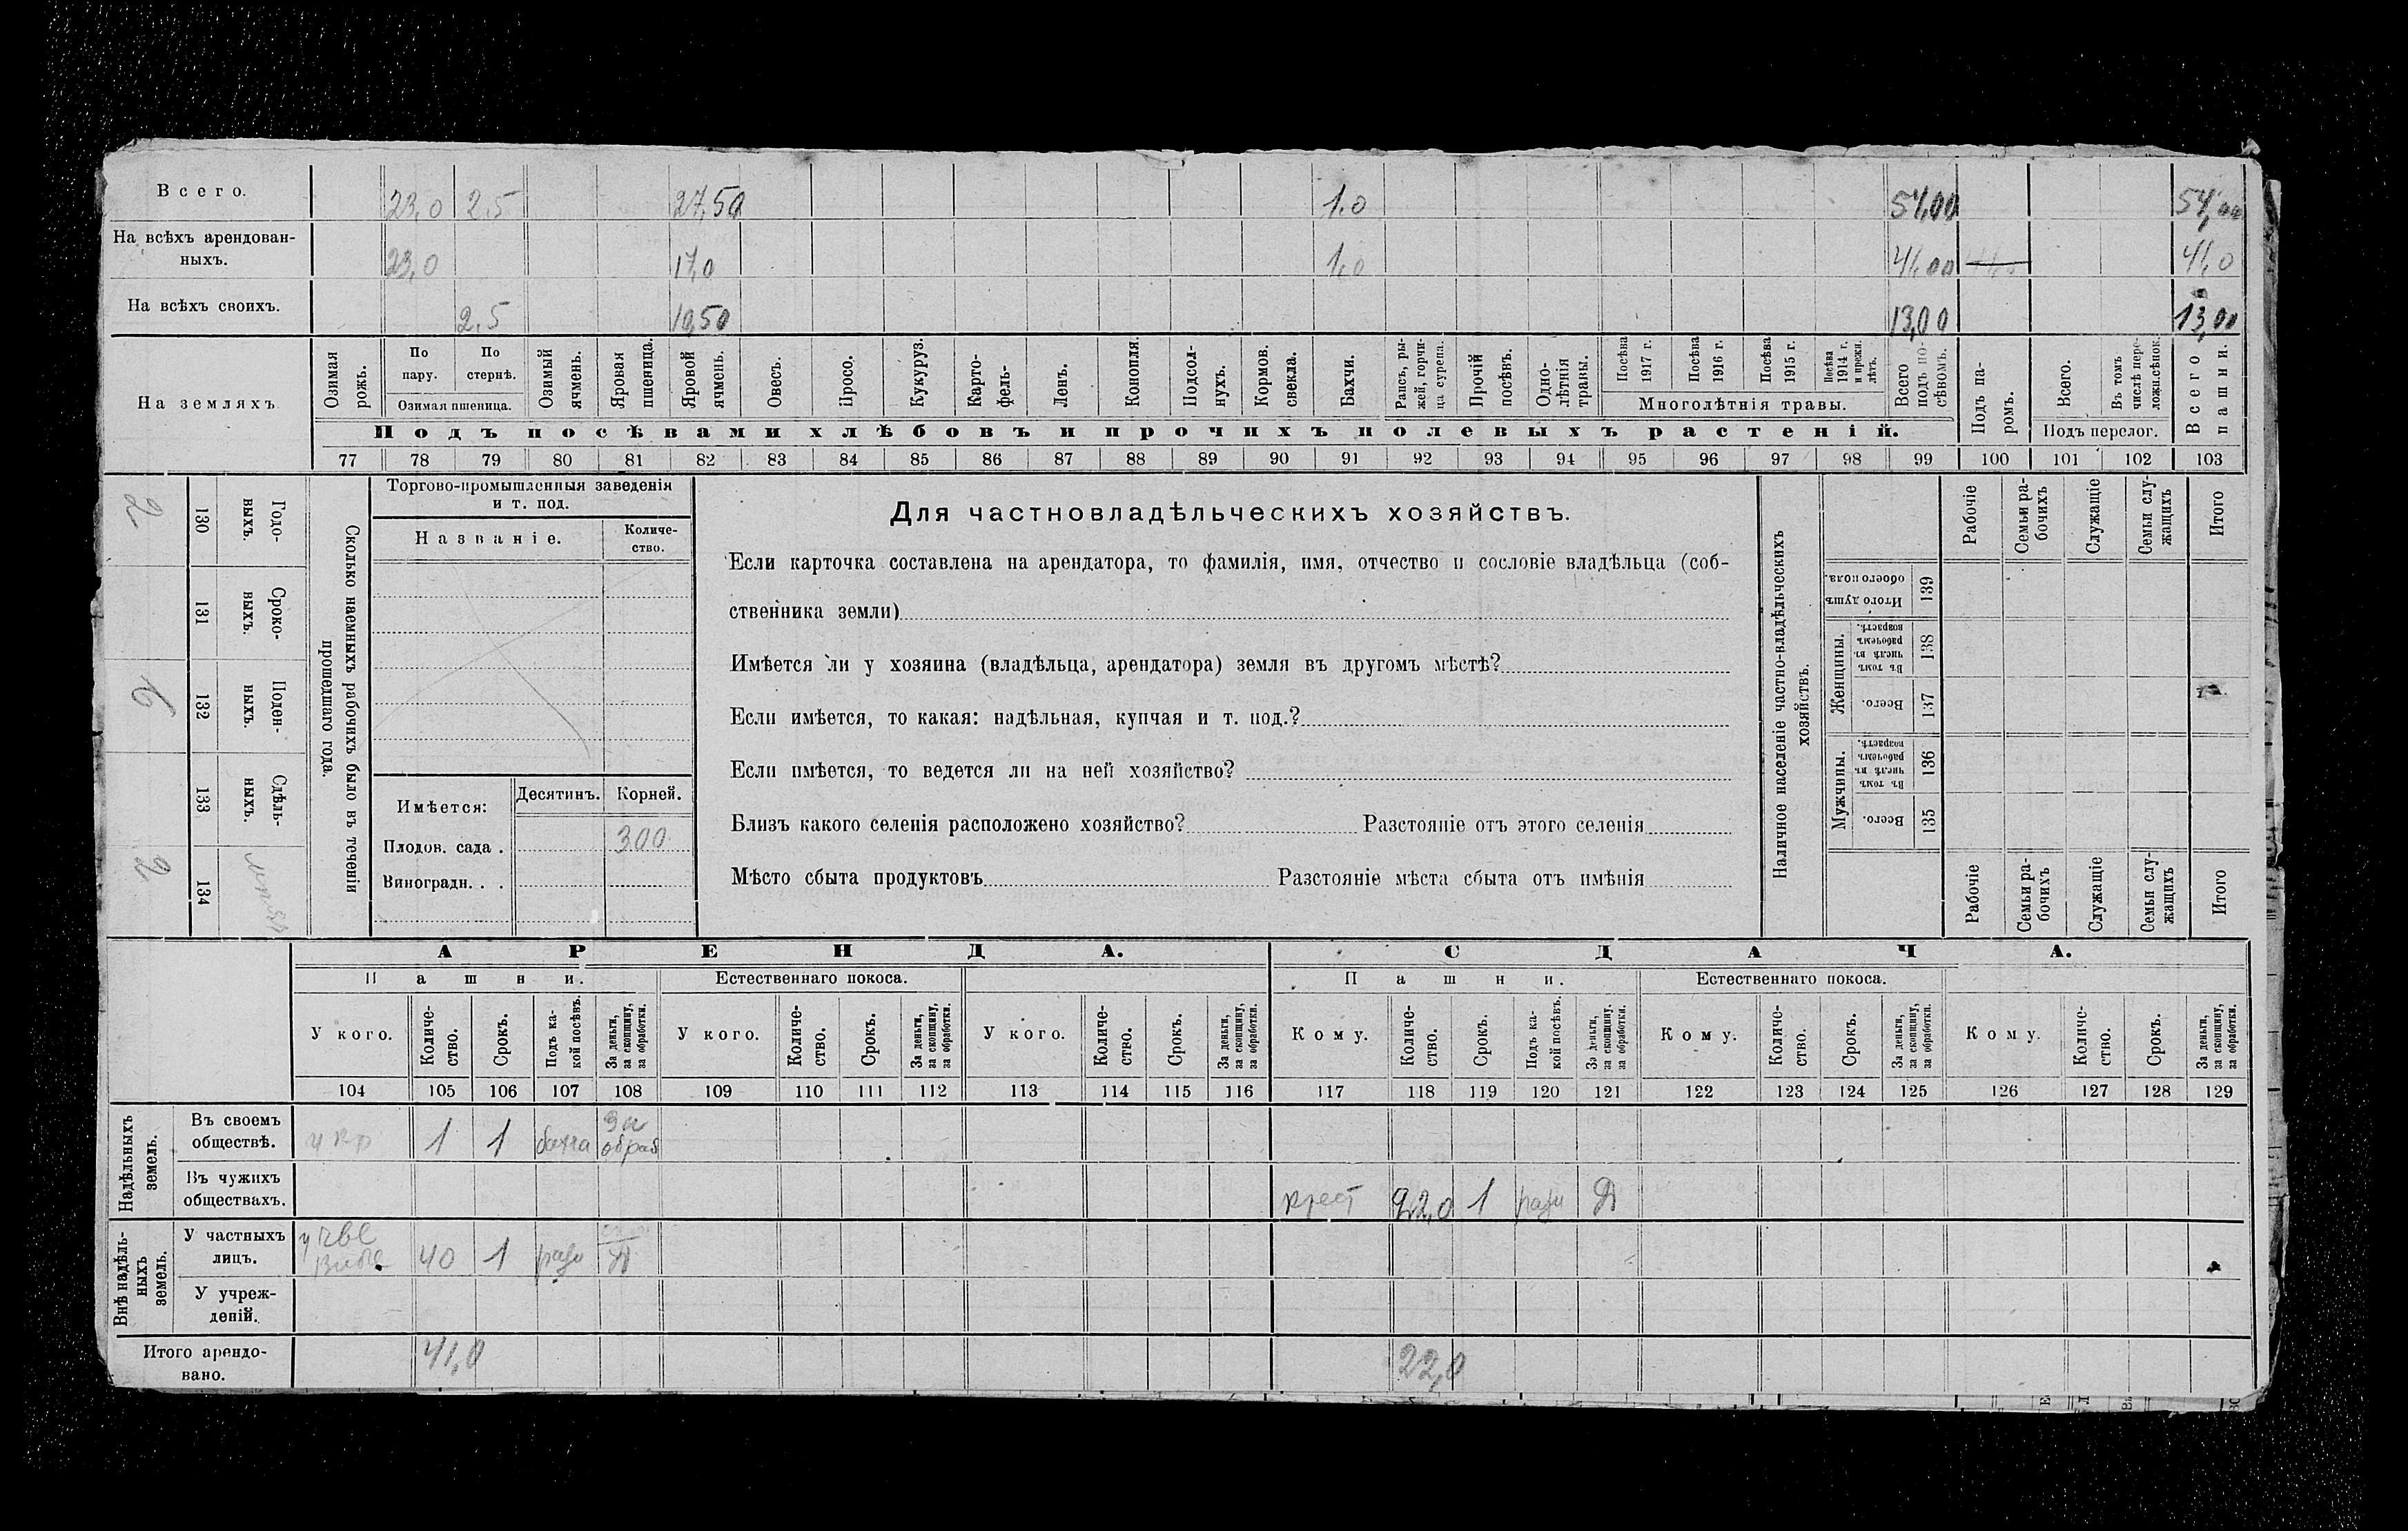 Всего. 23,0 2,5 27,50 1,0 54,00 54,00
На всѣхъ арендован-
ныхъ. 23,0 17,0 1,0 41,00 41,0
На всѣхъ своихъ. 2,5 10,50 13,00 13,00
На земляхъ
Озимая рожь.
По пару.
По стернѣ.
Озимая пшеница.
Озимый ячмень.
Яровая пшеница.
Яровой ячмень.
Овесъ.
Просо.
Кукуруз.
Карто-
фель.
Ленъ.
Конопля.
Подсол-
нухъ.
Кормов.
свекла.
Бахчи.
Рапсъ, ры-
жей, горчи-
ца сурепа.
Прочій
посѣвъ.
Одно-
лѣтнія
травы.
Посѣва
1917 г.
Посѣва
1916 г.
Посѣва
1915 г.
Посѣва
1914 г.
и прежн.
лѣтъ.
Многолѣтнія травы.
Всего
подъ по-
сѣвомъ.
Подъ па-
ромъ.
Всего.
Въ томъ
числѣ пере-
ложн.сѣнок.
Подъ перелог.
Всего
пашни.
Подъ посѣвами хлѣбовъ и прочихъ полевыхъ растеній.
77 78 79 80 81 82 83 84 85 86 87 88 89 90 91 92 93 94 95 96 97 98 99 100 101 102 103
Сколько наемныхъ рабочихъ было въ теченіи
прошедшаго года.
Годо-
выхъ.
130
2
Сроко-
выхъ.
131
Поден-
ныхъ.
132
6
Сдѣль-
ныхъ.
133
134
2
Торгово-промышленныя заведенія
и т. под.
Названіе.
Количе-
ство.
Имѣется: Десятинъ. Корней.
Плодов. сада . 300
Виноградн. . .
Для частновладѣльческихъ хозяйствъ.
Если карточка составлена на арендатора, то фамилія, имя, отчество и сословіе владѣльца (соб-
ственника земли)
Имѣется ли у хозяина (владѣльца, арендатора) земля въ другомъ мѣстѣ?
Если имѣется, то какая: надѣльная, купчая и т. под.?
Если имѣется, то ведется ли на ней хозяйство?
Близъ какого селенія расположено хозяйство? Разстояніе отъ этого селенія
Мѣсто сбыта продуктовъ Разстояніе мѣста сбыта отъ имѣнія
Наличное населеніе частно-владѣльческихъ
хозяйствъ.
Рабочіе
Семьи ра-
бочихъ
Служащіе
Семьи слу-
жащихъ
Итого
Итого душъ
обоего пола.
139
Женщины.
Въ томъ
числѣ въ
рабочемъ
возрастѣ.
138
Всего.
137
Мужчины.
Въ томъ
числѣ въ
рабочемъ
возрастѣ.
136
Всего.
135
Рабочіе
Семьи ра-
бочихъ
Служащіе
Семьи слу-
жащихъ
Итого
АРЕНДА. СДАЧА.
Пашни. Естественнаго покоса. Пашни. Естественнаго покоса.
У кого.
Количе-
ство.
Срокъ.
Подъ ка-
кой посѣвъ.
За деньги,
за скопщину,
за обработки.
У кого.
Количе-
ство.
Срокъ.
За деньги,
за скопщину,
за обработки.
У кого.
Количе-
ство.
Срокъ.
За деньги,
за скопщину,
за обработки.
Кому.
Количе-
ство.
Срокъ.
Подъ ка-
кой посѣвъ.
За деньги,
за скопщину,
за обработки.
Кому.
Количе-
ство.
Срокъ.
За деньги,
за скопщину,
за обработки.
Кому.
Количе-
ство.
Срокъ.
За деньги,
за скопщину,
за обработки.
104 105 106 107 108 109 110 111 112 113 114 115 116 117 118 119 120 121 122 123 124 125 126 127 128 129
Надѣльныхъ
земель.
Въ своемъ
обществѣ. 1 1 бахча за
образ
Въ чужихъ
обществахъ. крест 22,0 1 Д
Внѣ надѣль-
ныхъ
земель.
У частныхъ
лицъ. 40 1 Д
У учреж-
деній.
Итого арендо-
вано. 41,0 22,0